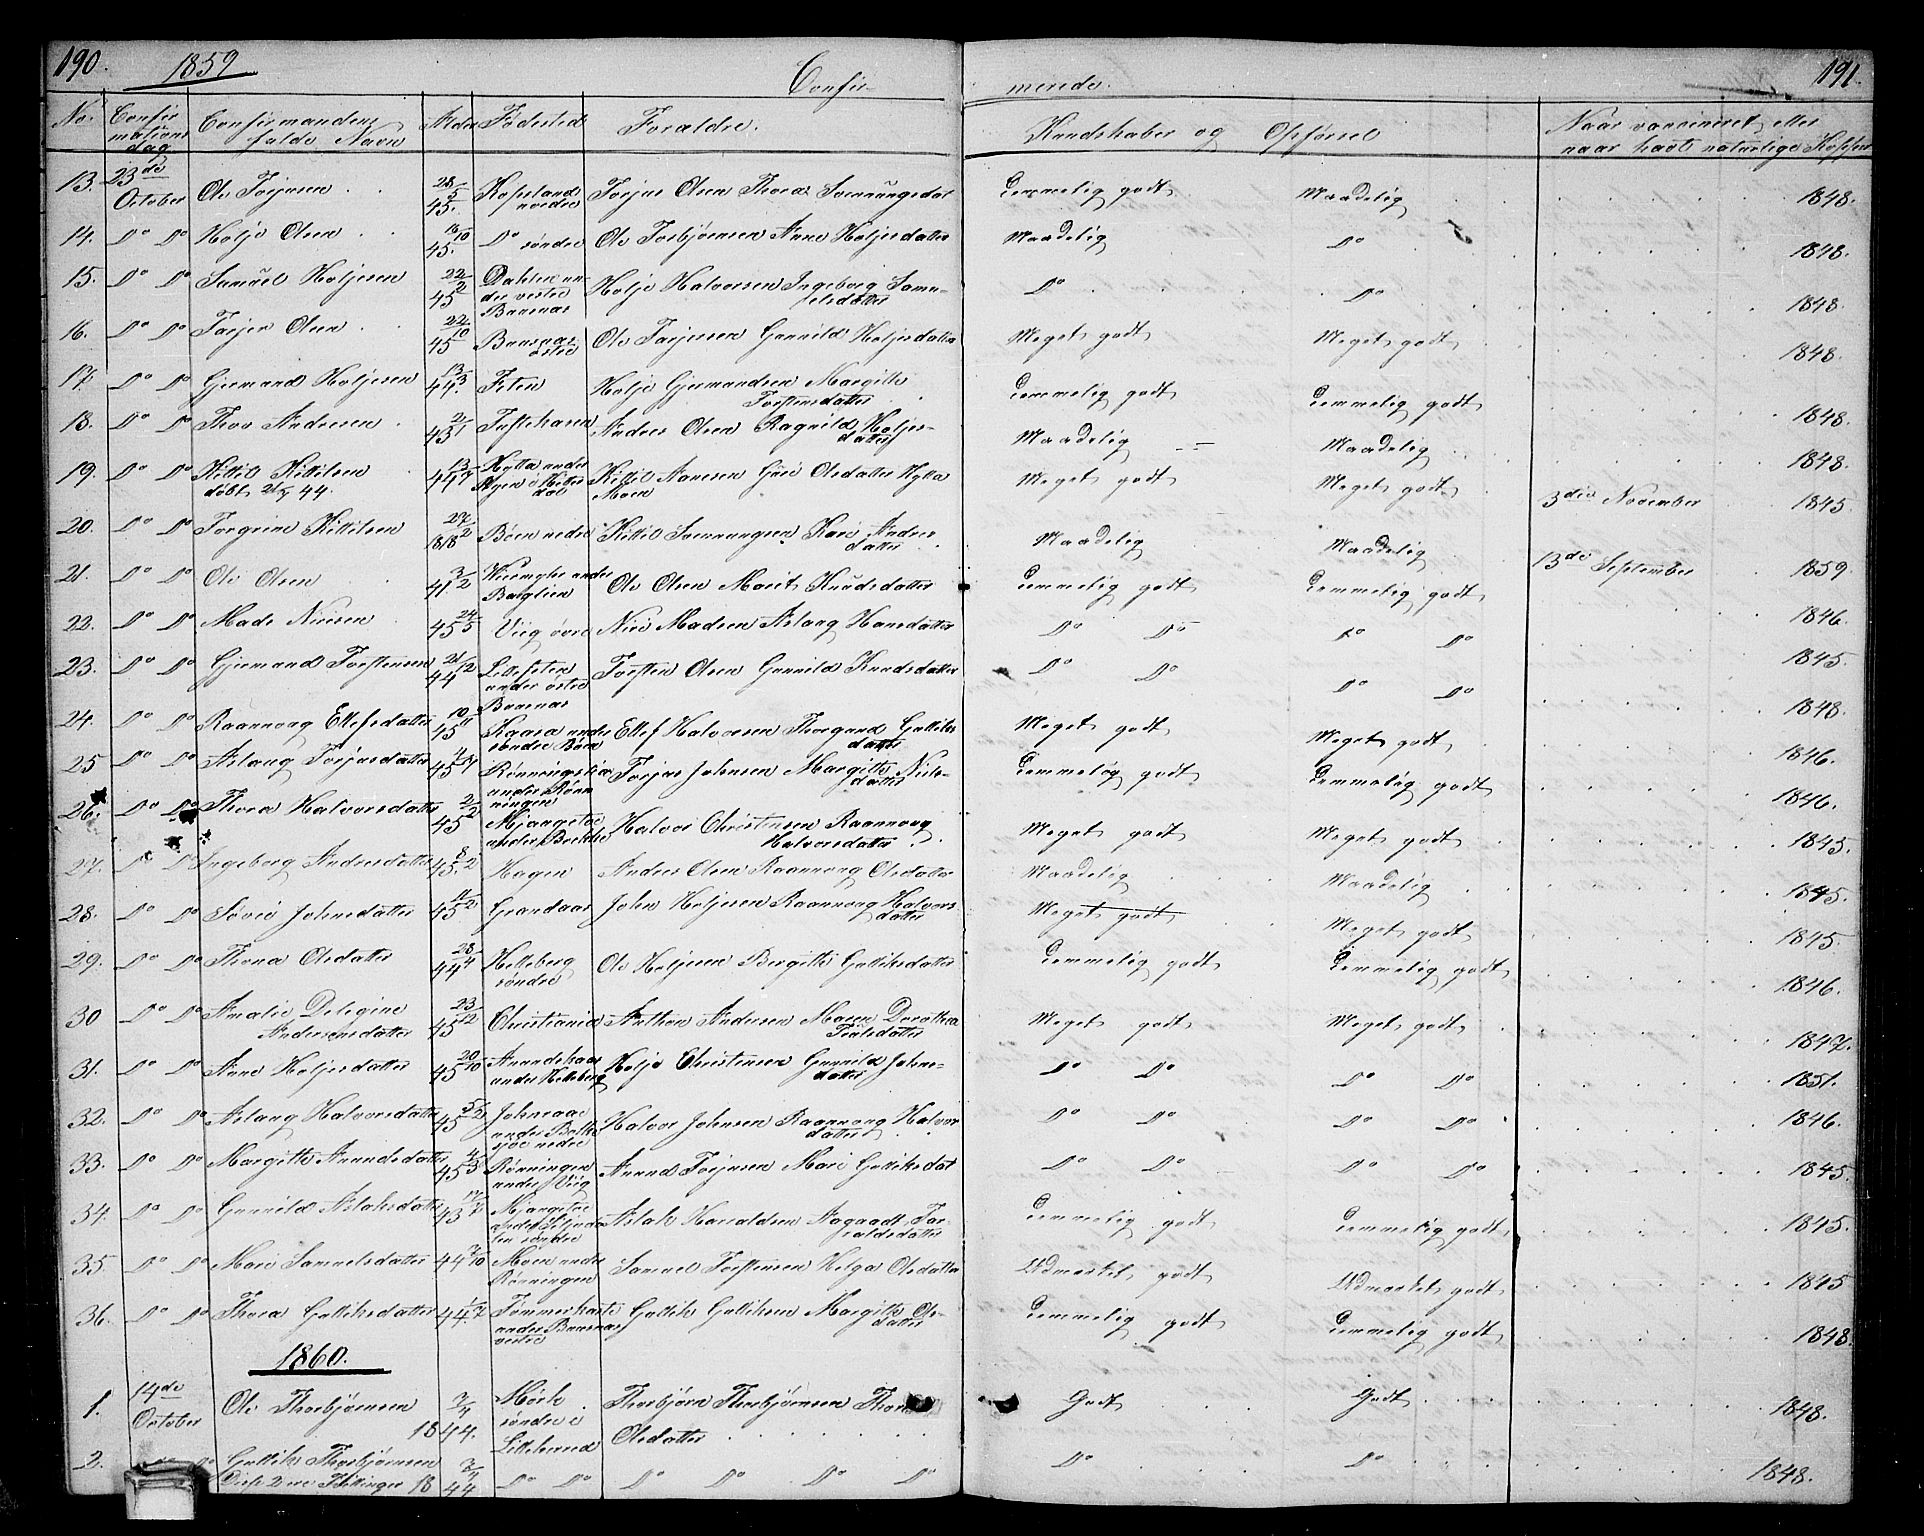 190. 1859 Confir- merede. 191.
No. Confirmations dag Confirmandens fulde Navn Alder Fødested Forældre. Kundskaber og Opførsel Naar vaccineret eller naar havt naturlige Kopper
13. 23de October Ole Torjusen 28/5 45. nordre Torjus Olsen Thora Temmelig godt Maadelig 1848.
14. Do Do Holje Olsen 45. Do søndre Ole Torbjørnsen Anne Holjesdatter Maadelig Do 1848.
15. Do Do Samuel Holjesen 22/2 45 Dahlen under vestre Baasnas Holje Halvorsen Ingeborg Samuelsdatter Do Do 1848.
16. Do Do Tarjer Olsen 22/10 45 Baasnas østre Ole Tarjersen Gunnild Holjesdatter Meget godt Meget godt 1848.
17. Do Do Gjermund Holjesen 13/3 44. Feten Holje Gjermundsen Margitte Torstensdatter Temmelig godt Temmelig godt 1848.
18. Do Do Thov Andersen 2/1 43 Anders Olsen Ragnild Holjesdatter Maadelig Maadelig 1848.
19. Do Do Kittil Kittilsen døbt 44. 13/7 44 Hytta under i Hitterdal Kittil Hansen Olsdatter Hytta Moen Meget godt Meget godt 3die November 1845
20. Do Do Torgrim Kittilsen 27/2 1818 Bøen nedre Kittil Kari Andersdatter Maadelig Maadelig 13de September 1859.
21. Do Do Ole Olsen 3/2 41 under Ole Olsen Marit Knudsdatter Temmelig godt Temmelig godt 1846.
22. Do Do Mads Nirisen 24/5 45 Viig øvre Niri Madsen Aslaug Hansdatter Do Do Do Do 1845.
23. Do Do Gjermund Torstensen 21/12 44 Lillefeten under østre Baasnas Torsten Olsen Gunnild Knudsdatter Do Do Do Do 1848.
24. Do Do Raannoug Ellefsdatter 10/11 45 Kaasa under søndre Bøen Ellef Halvorsen Thorgund Gulliksdatter Meget godt Meget godt 1846.
25 Do Do Aslaug Torjusdatter 45 under Rønningen Torjus Johnsen Margitte Nielsdatter Temmelig godt Temmelig godt 1846.
26. Do Do Thora Halvorsdatter 2/2 45 under Bøelthe Halvor Christensen Raannoug Halvorsdatter Meget godt Meget godt 1845.
27. Do Do Ingeborg Andersdatter 8/2 45. Hagen Anders Olsen Raannoug Olsdatter Maadelig Maadelig 1845.
28. Do Do Søvei Johnsdatter 45 Grandaas John Holjesen Raannoug Halvorsdatter Meget godt Meget godt 1845.
29. Do Do Thora Olsdatter 28/4 44 Helleberg søndre Ole Holjesen Bergitte Gulliksdatter Temmelig godt Temmelig godt 1846.
30 Do Do Amalie Deligine Andersensdatter 23/12 45 Christiania Anthon Andersen Maren Dorothea Meget godt Meget godt 1847.
31. Do Do Anne Holjesdatter 20/10 45 under Helleberg Holje Christensen Gunnild Johnsdatter Do Do Do Do 1851.
32. Do Do Aslaug Halvorsdatter 5/2 45 Johnsaas under Bolkesjøe nedre Halvor Johnsen Raannoug Halvorsdatter Do Do Do Do 1846.
33. Do Do Margitte Anundsdatter 4/3 45 Rønningen under Viig Anund Torjusen Mari Gulliksdat Do Do Do Do 1845.
34. Do Do Gunnild Aslaksdatter 17/7 43 under søndre Aslak Haraldsen Aagaadt Temmelig godt Temmelig godt 1845.
35. Do Do Mari Samuelsdatter 44 Moen under Rønningen Samuel Torstensen Helga Olsdatter Udmærket godt Udmærket godt 1845
36. Do Do Thora Gulliksdatter 1/7 44 under Baasnas vestre Gullik Gulliksen Margitte Olsdatter Temmelig godt Temmelig godt 1848
1860.
1. 14de October Ole Thorbjørnsen 3/4 1844. Mørk søndre i Lilleherred Thorbjørn Thorbjørnsen Thora Olsdatter Godt Godt 1848.
2. Do Gullik Thorbjørnsen Disse 2 ere Tvillinger 3/4 1844 Do Do Do Do Do Do Do Do 1848.